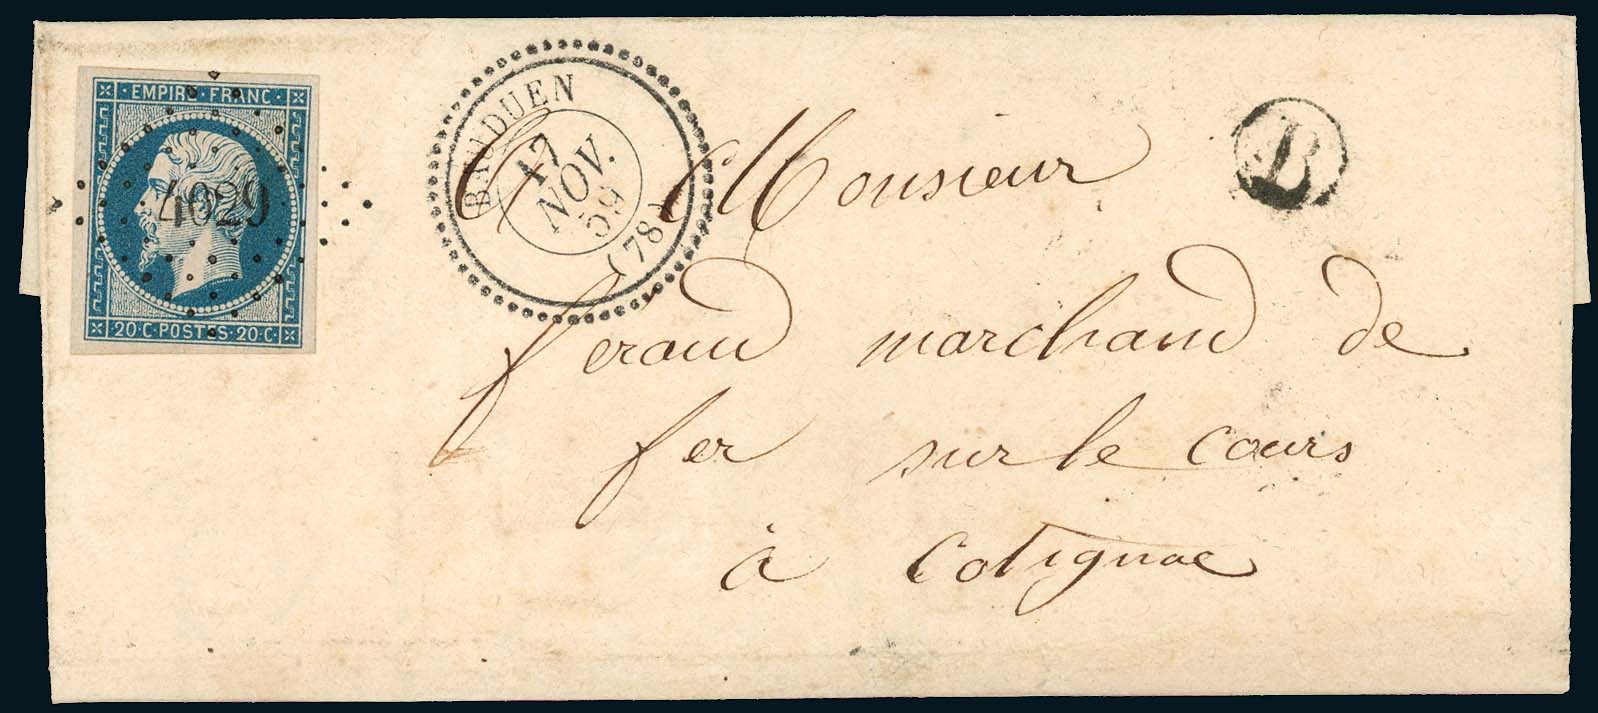 EMPIRE · FRANC ·
4029
20 · C · POSTES · 20 · C ·
BAUDUEN
17
NOV.
59
(78)
B
A Monsieur
feraud marchand de
fer sur le cours
à Cotignac